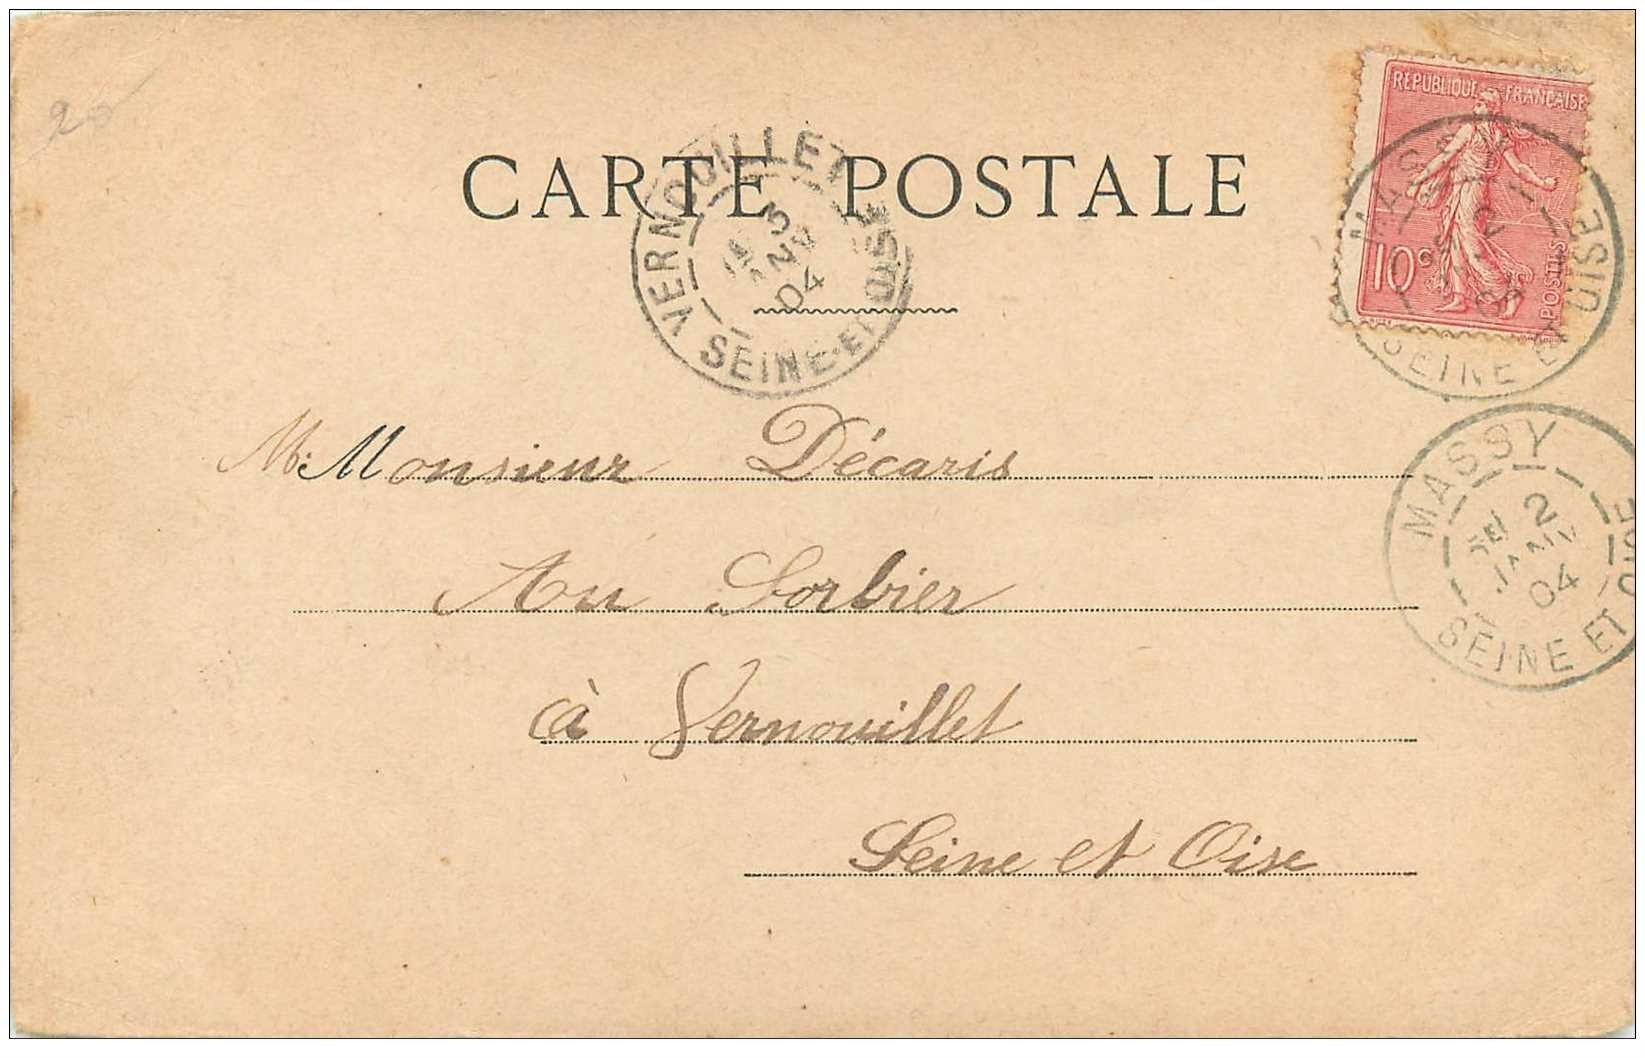 20
RÉPUBLIQUE FRANÇAISE
10c POSTES
CARTE POSTALE
VERNOUILLET
3
04
SEINE-ET-OISE
MASSY
2
04
SEINE ET OISE
MASSY
2
JANV
04
SEINE ET OISE
M. Monsieur Décaris
Au Sorbier
à Vernouillet
Seine et Oise